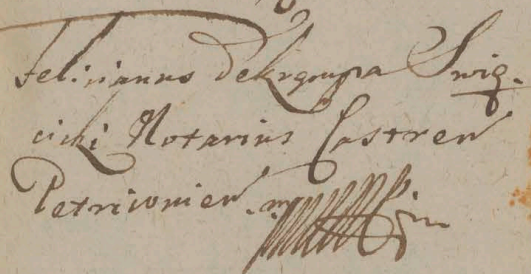 Felicianus de Krgrupa Swię-
cicki Notarius Castren
Petricovien mp